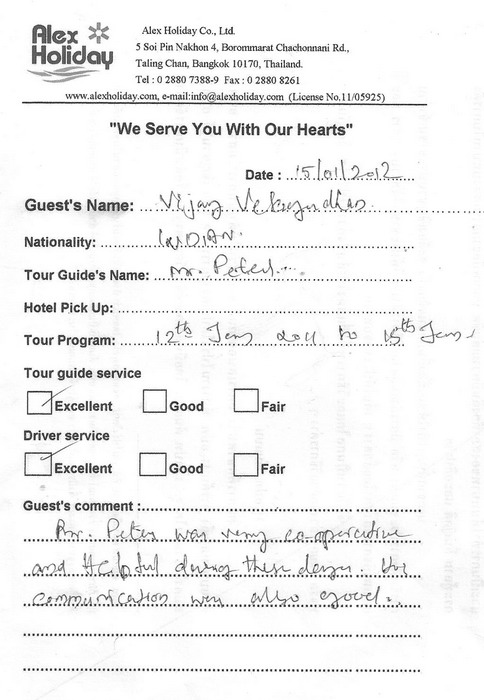 Alex Holiday
Alex Holiday Co., Ltd.
5 Soi Pin Nakhon 4, Borommarat Chachonnani Rd.,
Taling Chan, Bangkok 10170, Thailand.
Tel : 0 2880 7388-9 Fax : 0 2880 8261
www.alexholiday.com, e-mail:info@alexholiday.com (License No.11/05925)
"We Serve You With Our Hearts"
Date : 15/01/2012
Guest's Name: Vijay
Nationality: INDIAN.
Tour Guide's Name: Mr. Peter
Hotel Pick Up:
Tour Program: 12th Jany 2011 to 15th Jany
Tour guide service
Excellent Good Fair
Driver service
Excellent Good Fair
Guest's comment :
Mr. Peter was very co-operative
and Helpful during these days. His
communication was also good.